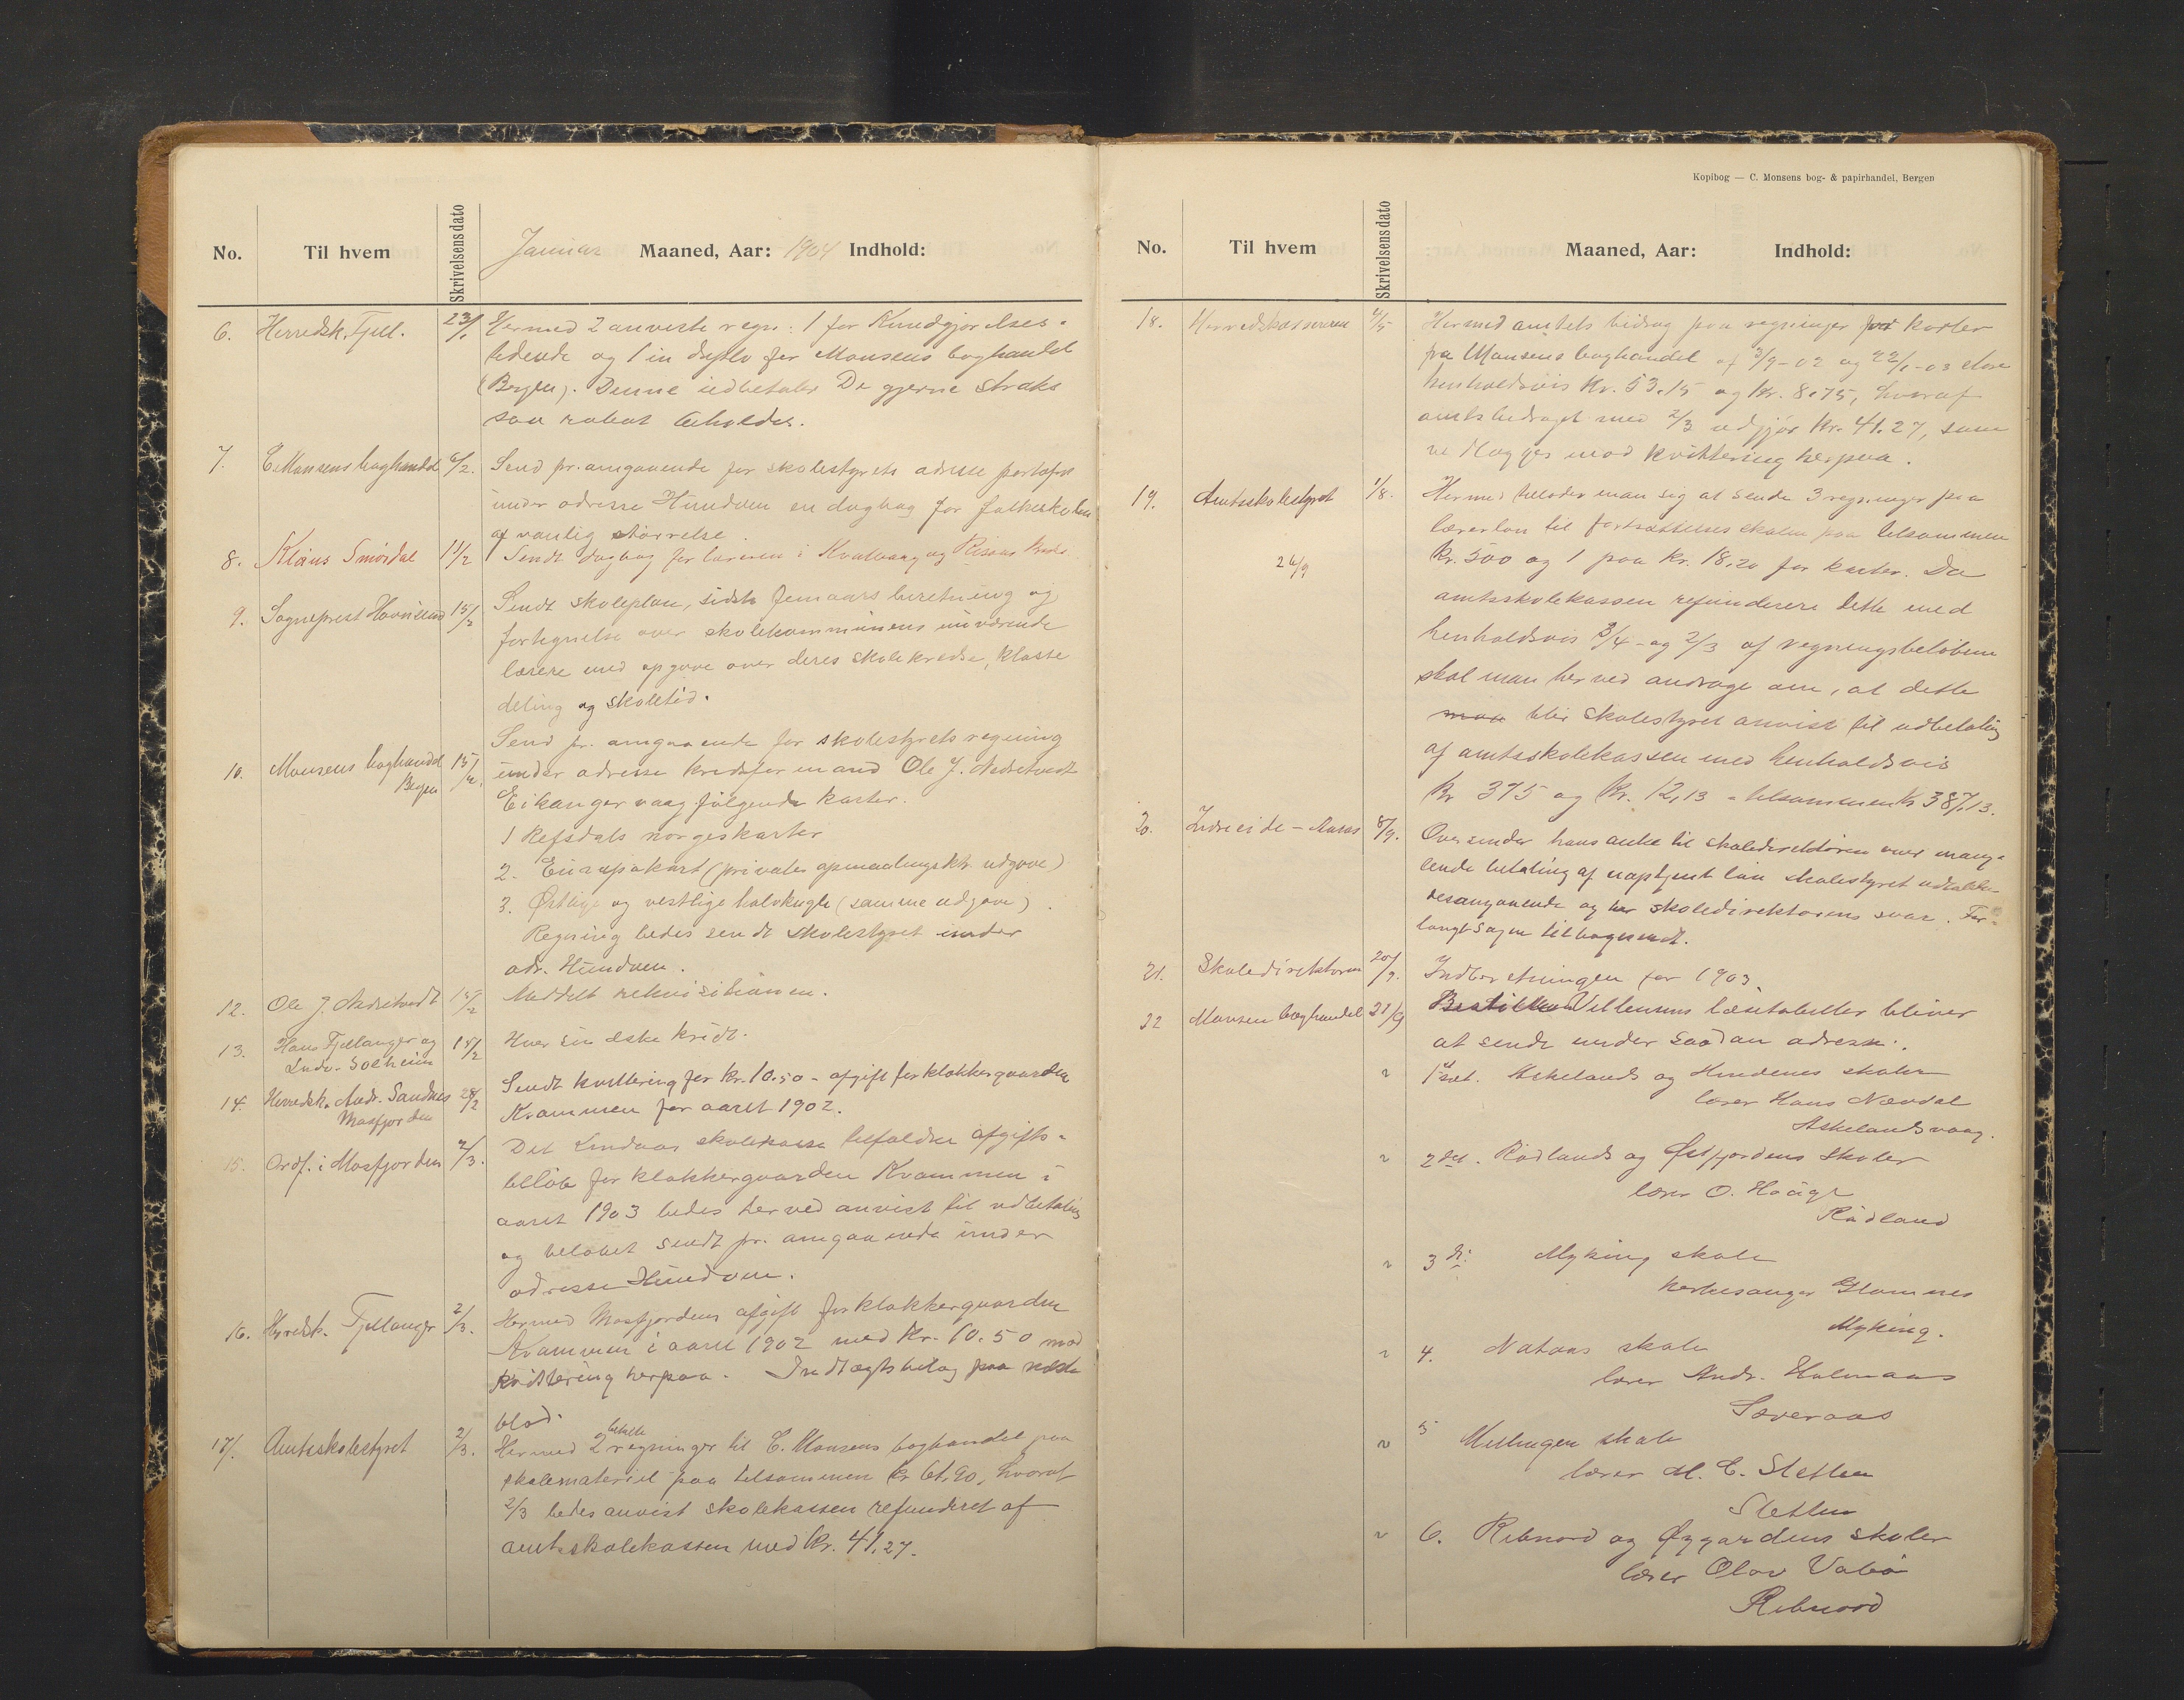 No.
Til hvem
Skrivelsens dato
Januar Maaned, Aar: 1904 Indhold:
6. Herredsk. Fjell. 23/1 Hermed 2 anviste regn: 1 for Kundgjørelses-
tidende og 1 in duplo for Monsens boghandel
(Bergen). Denne udbetaler De gjerne straks
saa rabat beholdes.
7. C. Monsens boghandel 6/2. Send pr. omgaaende for skolestyrets adresse portofrit
under adresse Hundven en dagbog for folkeskolen
af vanlig størrelse.
8. Klaus Smørdal 11/2 Sendt dagbog for læreren i Kvalvaag og Risøens kreds.
9. Sogneprest 15/2 Sendt skoleplan, sidste femaars beretning og
fortegnelse over skolekommunens nuværende
lærere med opgave over deres skolekredse, klasse
deling og skoletid.
Send pr. omgaaende for skolestyrets regning
10. Monsens boghandel 15/2. under adresse kredsformand Ole J. Nedretvedt
Bergen
Eikangervaag følgende karter.
1 Refsdals norgeskarter
2. Europakart (private opmaalingsktr. udgave)
3. Østlige og vestlige halvkugle (samme udgave).
Regning bedes sendt skolestyret under
adr. Hundven.
12. Ole J. Nedretvedt 15/2 Meddelt rekvisitionen.
13. Hans Fjellanger og 18/2 Hver sin æske kridt.
Ludv. Solheim
14. Herredsk. Andr. Sandnes 28/2 Sendt kvittering for kr. 10.50 - afgift for klokkergaarden
Masfjorden
Kvammen for aaret 1902.
15. Ordf. i Masfjorden 2/3. Det Lindaas skolekasse tilfaldne afgifts-
beløb for klokkergaarden Kvammen i
aaret 1903 bedes herved anvist til udbetaling
og beløbet sendt pr. omgaaende under
adresse Hundven.
16. Herredsk. Fjellanger 2/3. Hermed Masfjordens afgift for klokkergaarden
Kvammen i aaret 1902 med Kr. 10.50 mod
kvittering herpaa. Indtægtsbilag paa næste
blad.
17. Amtsskolestyret 2/3. Hermed 2 betalte regninger til C. Monsens boghandel paa
skolemateriel paa tilsammen kr 61,90, hvoraf
2/3 bedes anvist skolekassen refunderet af
amtsskolekassen med kr. 41,27.
Kopibog — C. Monsens bog- & papirhandel, Bergen
No.
Til hvem
Skrivelsens dato
Maaned, Aar: Indhold:
18. Herredskassereren 4/5 Hermed amtets bidrag paa regninger for karter
fra Monsens boghandel af 3/9-02 og 22/1-03 store
henholdsvis Kr. 53.15 og Kr. 8.75, hvoraf
amtsbidraget med 2/3 udgjør Kr. 41.27, som
vedlægges mod kvittering herpaa.
19. Amtsskolestyret 1/8. Hermed tillader man sig at sende 3 regninger paa
lærerløn til fortsættelsesskolen paa tilsammen
24/9
Kr. 500 og 1 paa Kr. 18,20 for karter. Da
amtsskolekassen refunderer dette med
henholdsvis 3/4- og 2/3 af regningsbeløbene
skal man herved andrage om, at dette
maa blir skolestyret anvist til udbetaling
af amtsskolekassen med henholdsvis
Kr 375 og Kr. 12,13 - tilsammen kr 387,13.
20. Indreeide - 8/9. Oversender hans anke til skoledirektøren over mang-
lende betaling af uoptjent løn skolestyret
desangaaende og skoledirektørens svar. For-
langt sagen tilbagesendt.
21. Skoledirektøren 20/9. Indberetningen for 1903.
22 Monsen boghandel 21/9 Bestilles Vellemens læsetabeller bliver
at sende under saadan adresse:.
1 sæt. Askelands og Hindenes skoler
lærer Hans Nævdal
Askelandsvaag.
2det. Rødlands og Østfjordens skoler
lærer O. Haage
Rødland
3 di: Myking skole
kirkesanger Glomnes
Myking.
4. Nataas skole
lærer Andr. Holmaas
Sæveraas
5 skole
lærer M. C. Sletten
Sletten
6. Rebnord og Øygardens skoler
lærer Olav Vabø
Rebnord